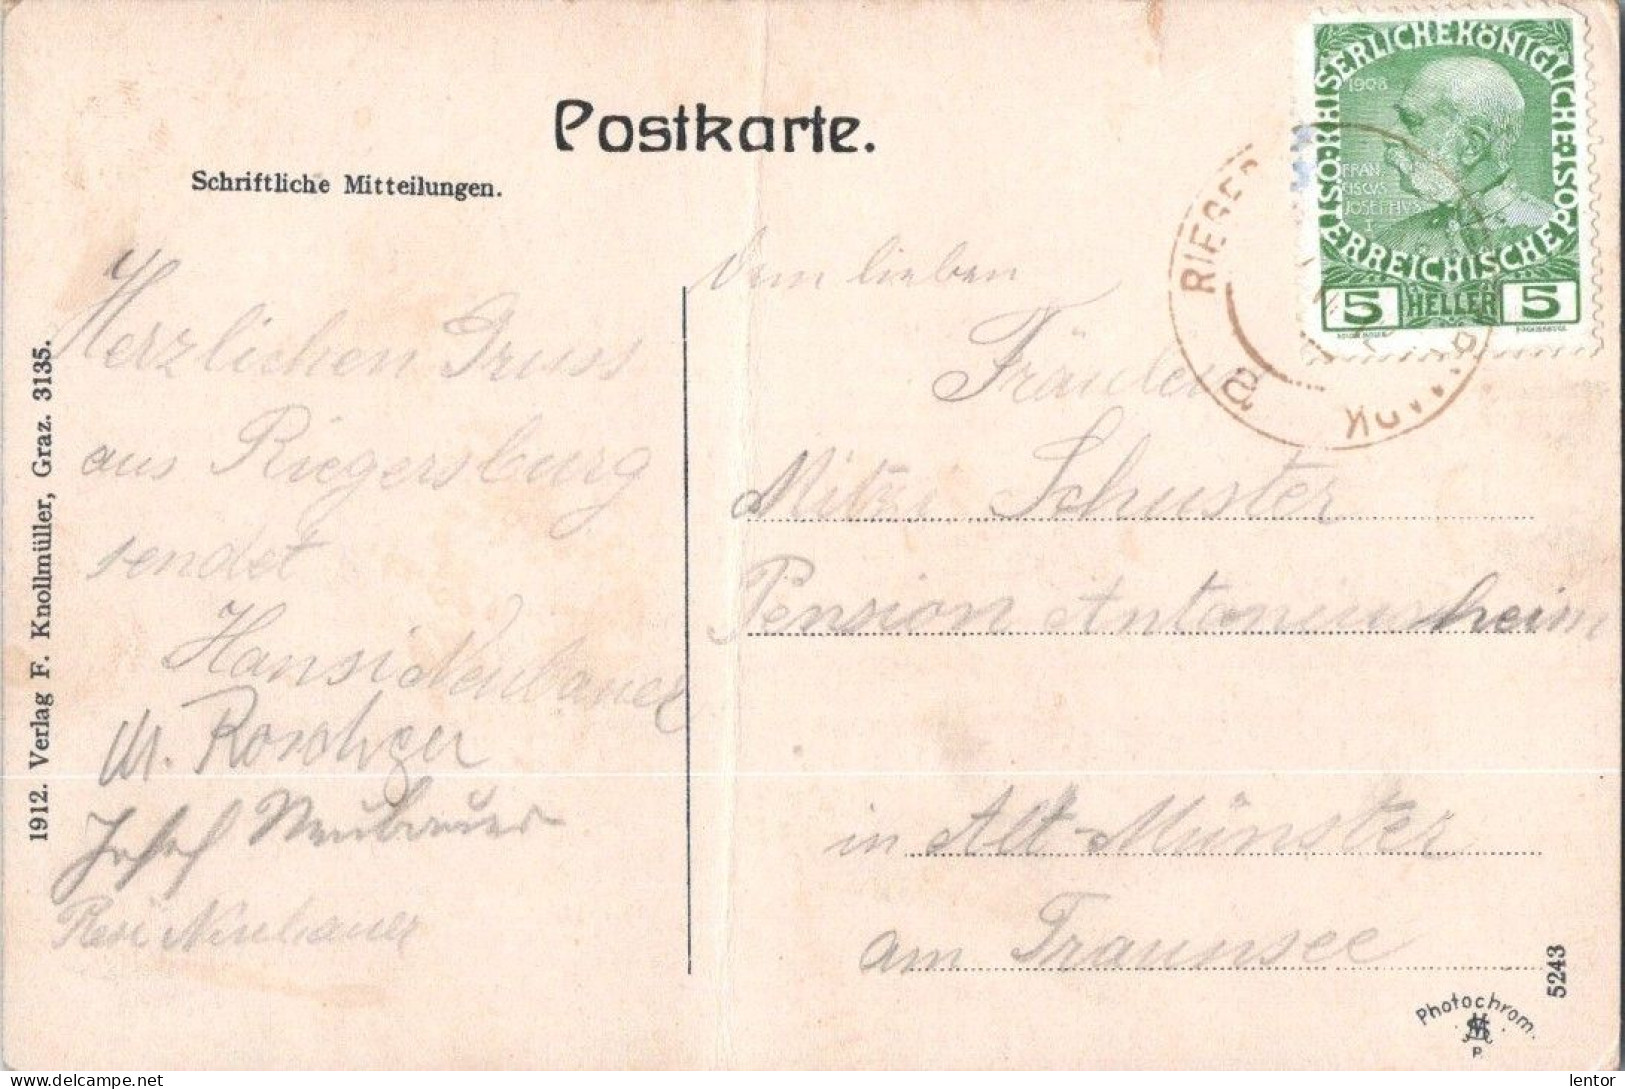 Postkarte.
Schriftliche Mitteilungen.
Herzlichen Gruss
aus Riegersburg
sendet
Hansi Neubauer
M.
Josef Neubauer
Resi Neubauer
1912. Verlag F. Knollmüller, Graz. 3135.
KAISERLICHE KÖNIGLICHE ÖSTERREICHISCHE POST
1908
FRAN
CISCVS
JOSEPHVS
I
5 HELLER 5
RIEGER
Dem lieben
Fräulein
Mitzi Schuster
Pension Antoniusheim
in Alt-Münster
am Traunsee
5243
Photochrom.
P.
lentor